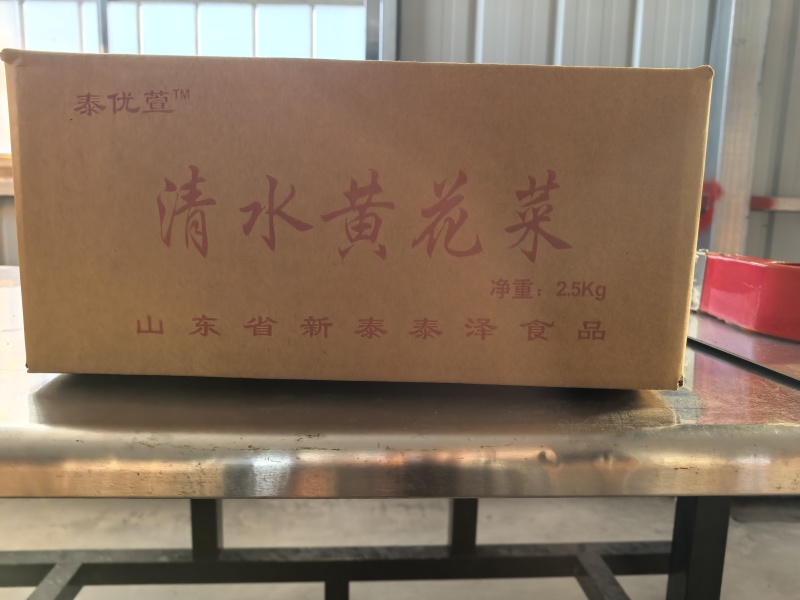 泰优萱™
清水黄花菜
净重：2.5Kg
山东省新泰泰泽食品